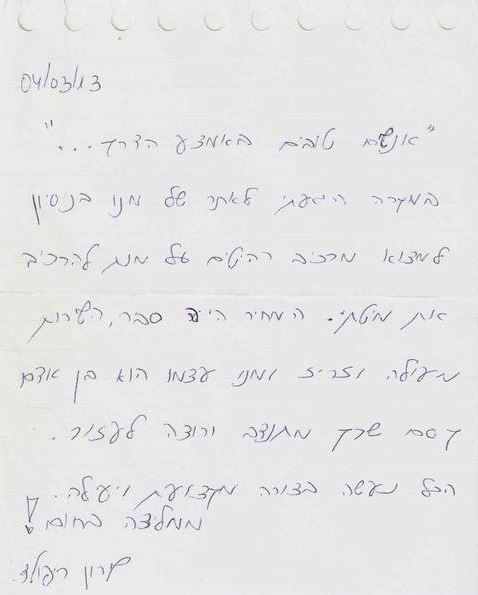 04/03/13
"אנשים טובים באמצע הדרך..."
במקרה הגעתי לאתר של מנו בניסיון
למצוא מרכיב רהיטים על מנת להרכיב
את מיטתי. המחיר היה סביר, השירות
מעולה וזריז ומנו עצמו הוא בן אדם
קסם שרק מתנדב ורוצה לעזור.
הכל נעשה בצורה מקצועית ויעילה.
ממליצה בחום!
שרון